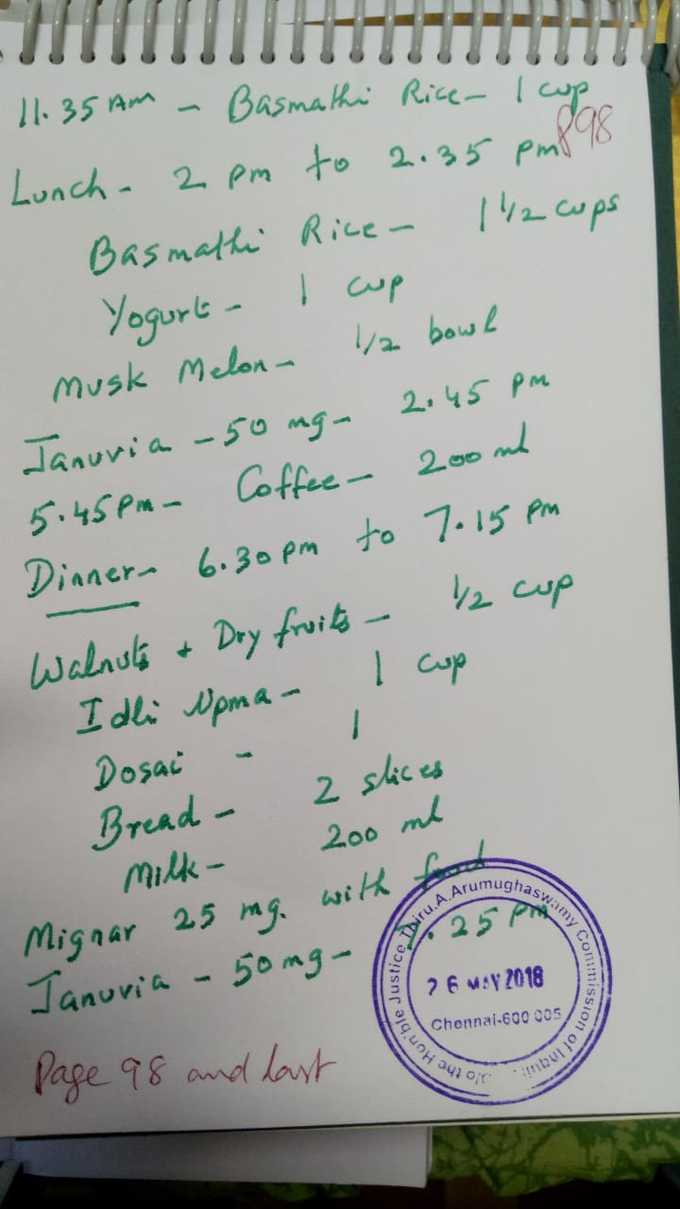 11.35 AM - Basmathi Rice - 1 cup
P98
Lunch - 2 pm to 2.35 pm
Basmathi Rice - 1 1/2 cups
Yogurt - 1 cup
Musk Melon - 1/2 bowl
Januvia - 50 mg - 2.45 pm
5.45 pm - Coffee - 200 ml
Dinner - 6.30 pm to 7.15 pm
Walnuts + Dry fruits - 1/2 cup
Idli Upma - 1 cup
Dosai - 1
Bread - 2 slices
Milk - 200 ml
Mignar 25 mg. with food
Januvia - 50 mg - 7.25 pm
Page 98 and last
O/o the Hon'ble Justice Thiru.A.Arumughaswamy Commission of Inquiry
26 MAY 2018
Chennai-600 005